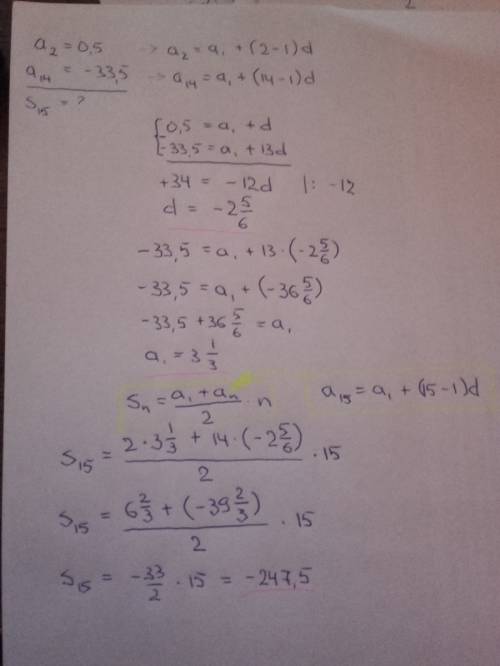 a₂ = 0,5 -> a₂ = a₁ + (2-1)d
a₁₄ = -33,5 -> a₁₄ = a₁ + (14-1)d
S₁₅ = ?
{0,5 = a₁ + d
-33,5 = a₁ + 13d
+34 = -12d |: -12
d = -2 5/6
-33,5 = a₁ + 13·(-2 5/6)
-33,5 = a₁ + (-36 5/6)
-33,5 + 36 5/6 = a₁
a₁ = 3 1/3
Sₙ = (a₁ + aₙ)/2 · n a₁₅ = a₁ + (15-1)d
S₁₅ = (2·3 1/3 + 14·(-2 5/6))/2 · 15
S₁₅ = (6 2/3 + (-39 2/3))/2 · 15
S₁₅ = -33/2 · 15 = -247,5